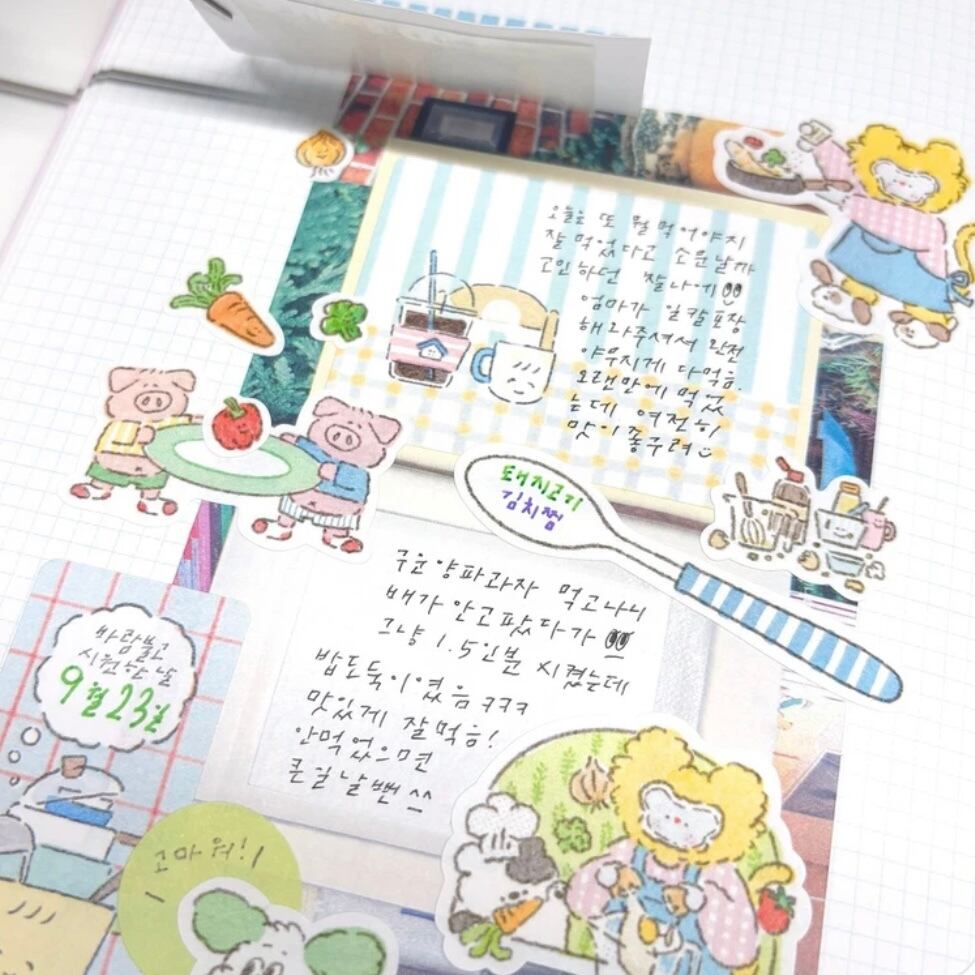 오늘은 또 뭘 먹어야지
잘 먹었다고 소문날까
고민하던 찰나에
엄마가 일칼포장
해다주셔서 완전
야무지게 다먹음.
오랜만에 먹었
는데 여전히
맛이좋구려
돼지고기
김치찜
구운양파과자 먹고나니
배가 안고팠다가
그냥 1.5인분 시켰는데
밥도둑이였음 ㅋㅋㅋ
맛있게 잘먹음!
안먹었으면
큰일날뻔 ^^
바람불고
시원한 날
9월23일
고마워!!